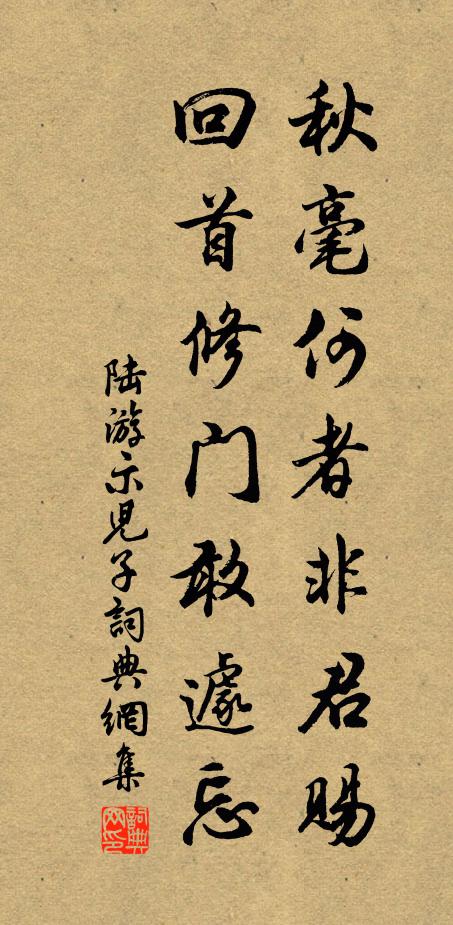 秋毫何者非君賜
回首修门敢遽忘
陆游示児子詞典網集
詞典网印